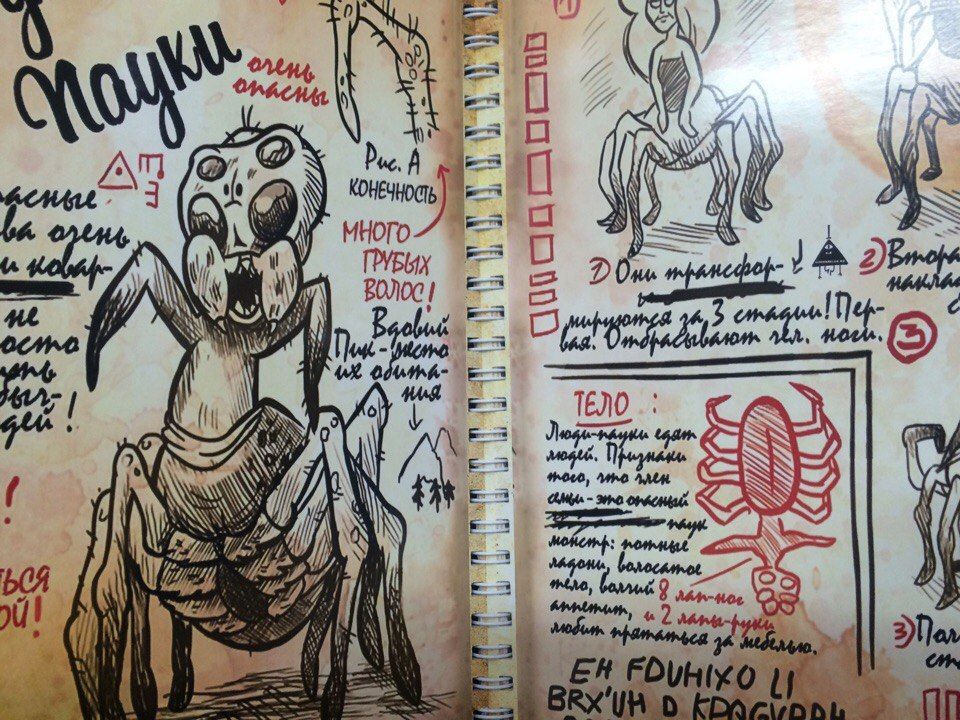 Пауки
очень
опасны
Рис. А
конечность
много
грубых
волос!
очень
и ковар-
не
Вдовий
Пик - место
их обита-
ния
!
!
1) Они трансфор-
мируются за 3 стадии! Пер-
вая. Отбрасывают чел. ноги.
2) Втора
наклад
3
ТЕЛО :
Люди-пауки едят
людей. Признаки
того, что член
семьи - это опасный
паук
монстр: потные
ладони, волосатое
тело, волчий 8 лап-ног
аппетит, и 2 лапы-руки
любит прятаться за мебелью.
3) Пол
ст
EH FDUHIXO LI
BRX'UH D KPDGVRPH